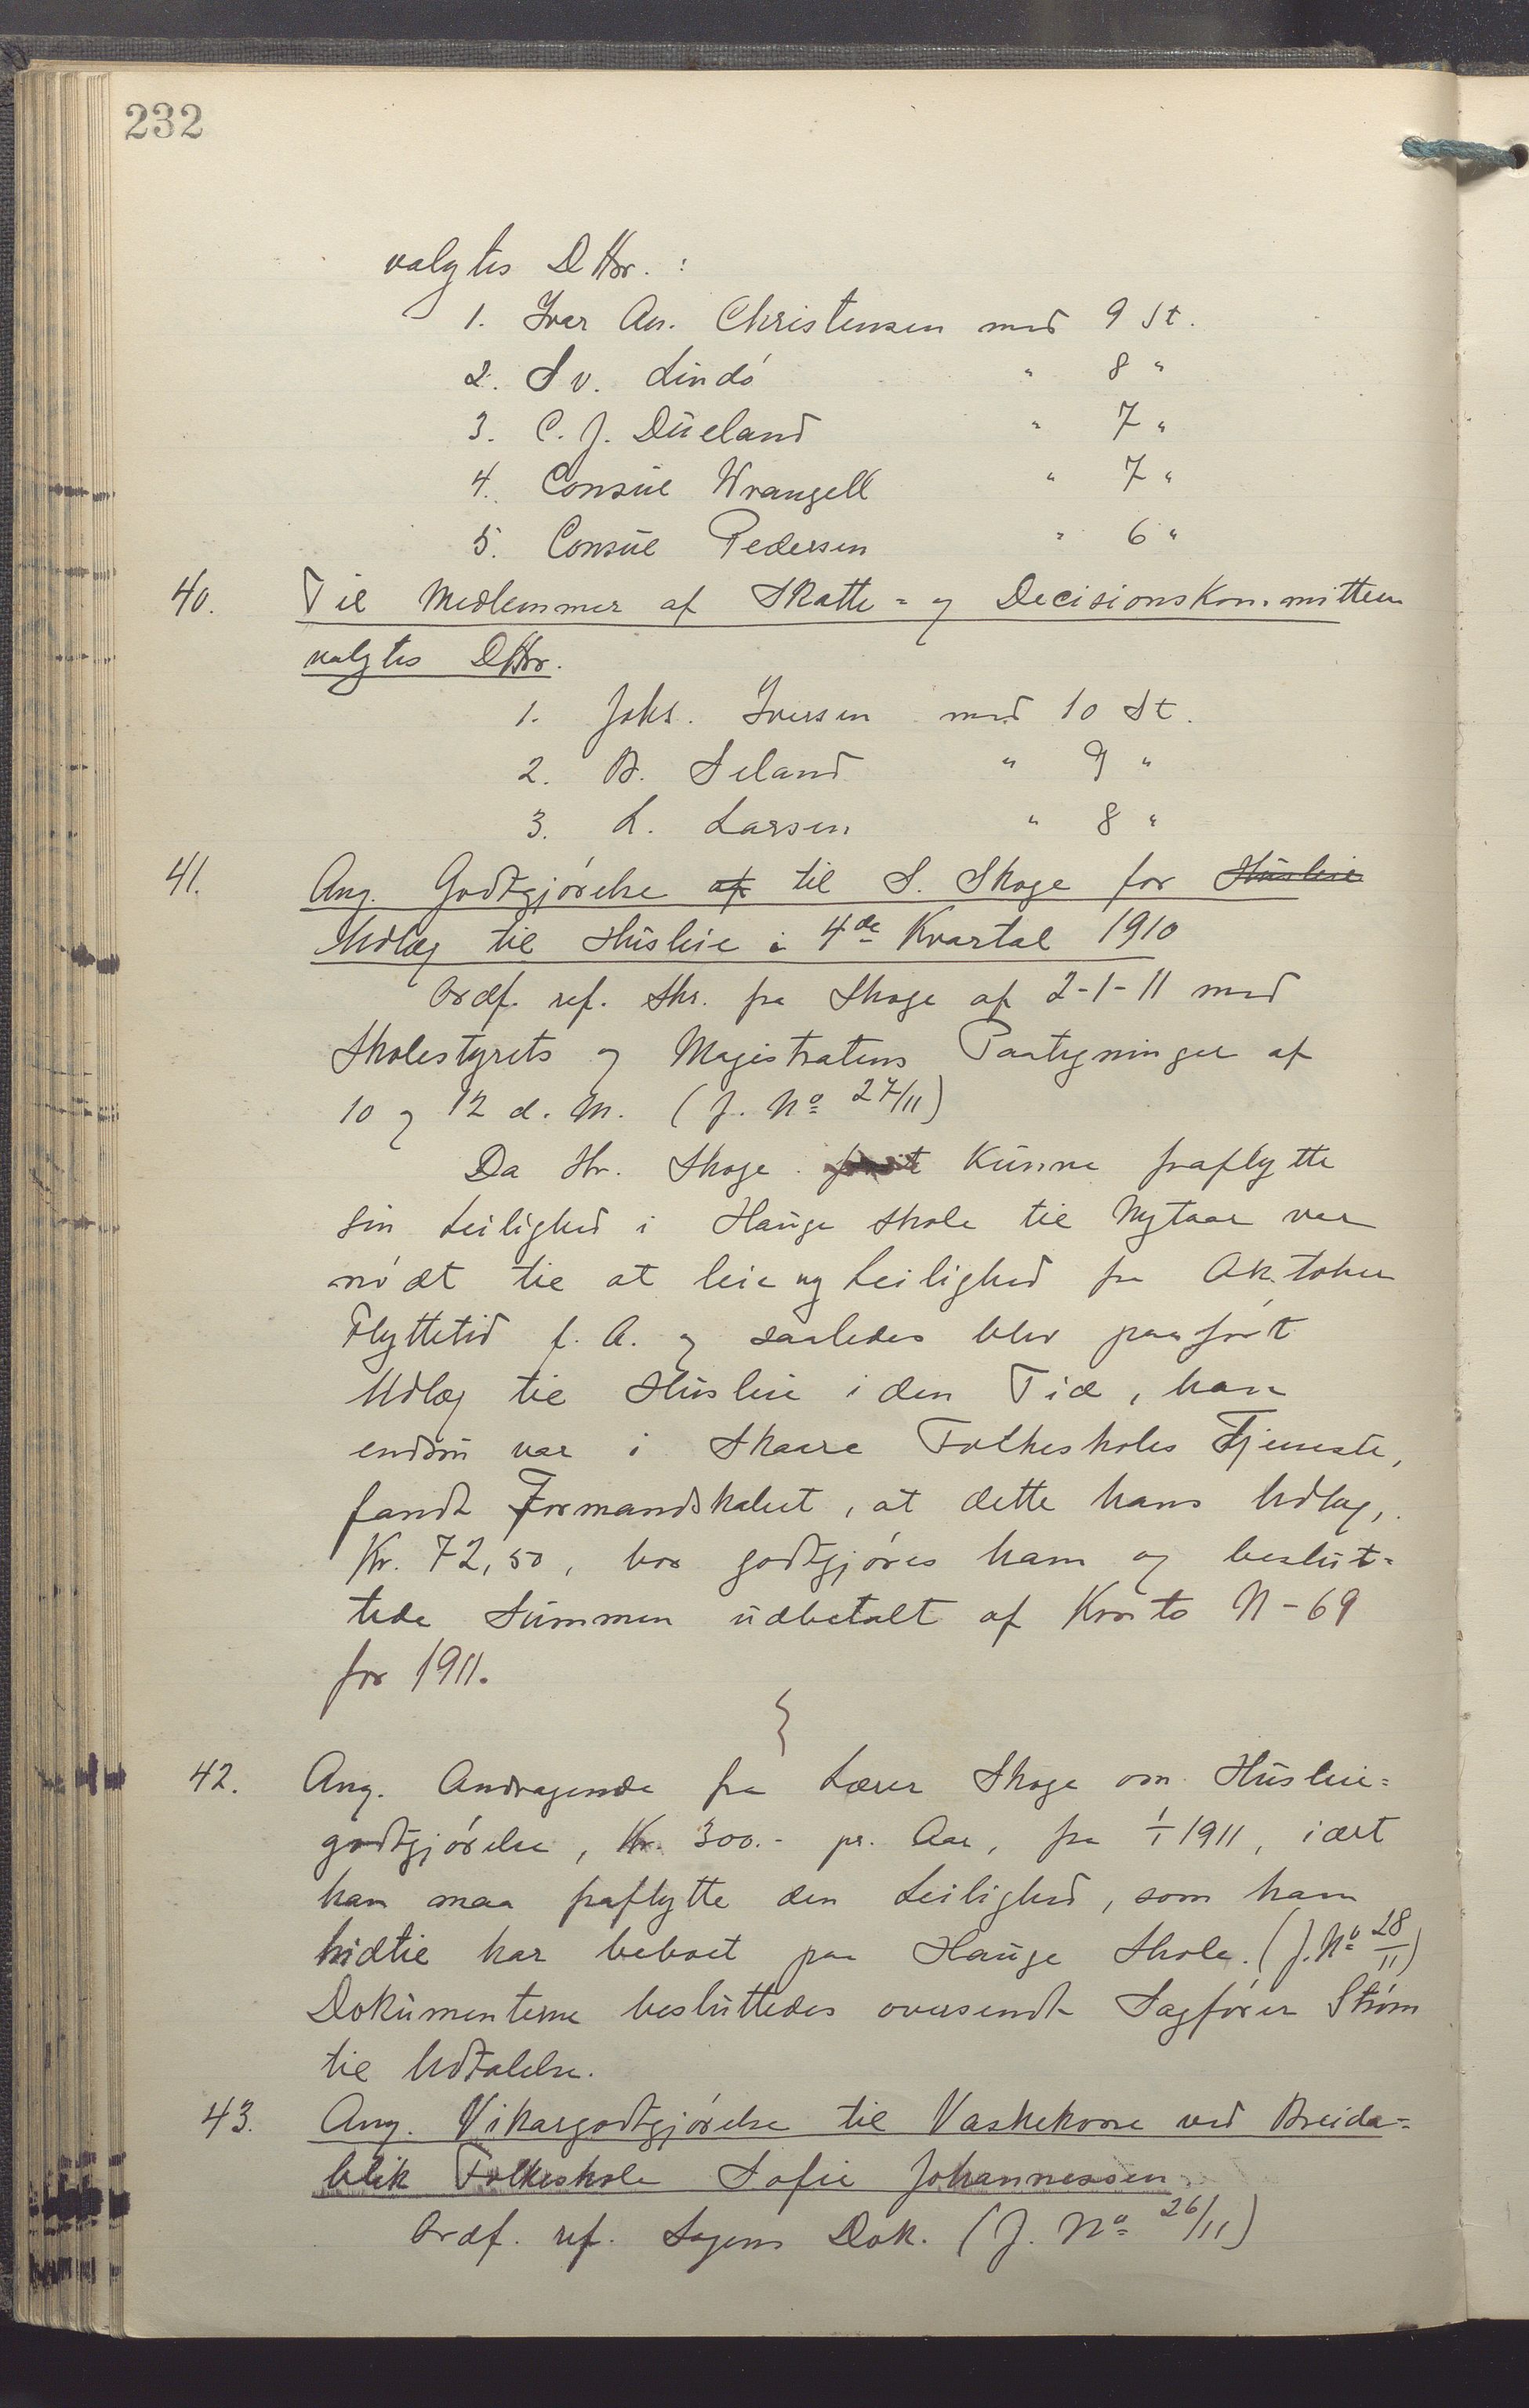 232
valgtes DHrr. :
1. Iver An. Christensen med 9 St.
2. Sv. Lindö " 8 "
3. C. J. Düeland " 7 "
4. Consül Wrangell " 7 "
5. Consül Pedersen " 6 "
40. Til Medlemmer af Skatte= og Decisionskommitteen
valgtes DHrr.
1. Johs. Iversen med 10 St.
2. B. Seland " 9 "
3. L. Larsen " 8 "
41. Ang. Godtgjörelse af til S. Skoge for Hüsleie
Udlæg til Hüsleie i 4de Kvartal 1910
Ordf. ref. Skr. fra Skoge af 2-1-11 med
Skolestyrets og Magistratens Paategninger af
10 og 12 d. M. (J. No 27/11)
Da Hr. Skoge künne fraflytte
sin Leilighed i Haüge Skole til Nytaar var
nödt til at leie ny Leilighed fra Oktober
Flyttetid f. A. og saaledes blev paafört
Udlæg til Hüsleie i den Tid, han
endnü var i Skaare Folkeskoles Tjeneste,
fandt Formandskabet, at dette hans Udlæg,
Kr. 72,50, bör godtgjöres ham og beslüt=
tede Sümmen üdbetalt af Konto N-69
for 1911.
42. Ang. Andragende fra Lærer Skoge om Hüsleie=
godtgjörelse, Kr. 300.- pr. Aar, fra 1/1 1911, idet
han maa fraflytte den Leilighed, som han
hidtil har beboet paa Haüge Skole. (J. No 28/11)
Dokümenterne beslüttedes oversendt Sagförer Ström
til Udtalelse.
43. Ang. Vikargodtgjörelse til Vaskekone ved Breida=
blik Folkeskole Sofie Johannessen.
Ordf. ref. Sagens Dok. (J. No 26/11)